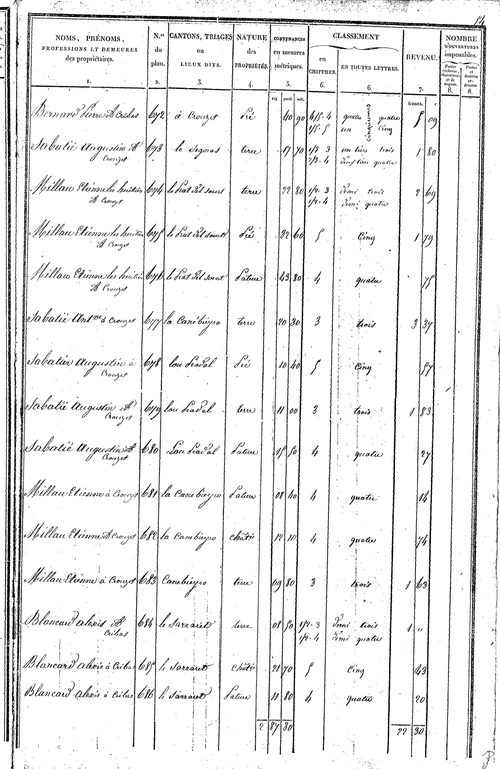 14
NOMS, PRÉNOMS, PROFESSIONS ET DEMEURES des propriétaires. | N.os du plan. | CANTONS, TRIAGES ou LIEUX DITS. | NATURE des PROPRIÉTÉS. | CONTENANCES en mesures métriques. | CLASSEMENT en CHIFFRES. | EN TOUTES LETTRES. | REVENU. | NOMBRE D'OUVERTURES imposables.
1. | 2. | 3. | 4. | 5. | 6. | 6. | 7. | 8. | 8.
Bernard Pierre 672 à Crouzet Pré 40 90 4/5-4 quatre quatre 5 09
1/5-5 un cinquième Cinq
Sabatié Augustin 673 terre 17 70 1/3 3 un tiers trois 1 80
à Crouzet 2/3-4 Deux tiers quatre
Millau Etienne les héritiers 674 le Prat del terre 22 80 1/2 3 Demi trois 2 69
à Crouzet 1/2-4 Demi quatre
Millau Etienne les héritiers 675 le Prat del Pré 32 60 5 Cinq 1 79
à Crouzet
Millau Etienne les héritiers 676 le Prat del Pature 43 80 4 quatre 75
à Crouzet
Sabatié Ant.ne à Crouzet 677 la Canebieyro terre 20 30 3 trois 3 37
Sabatier Augustin à 678 lou Pradal Pré 10 40 5 Cinq 57
Crouzet
Sabatié Augustin 679 lou Pradal terre 11 00 3 trois 1 83
Crouzet
Sabatié Augustin 680 Lou Pradal Pature 15 50 4 quatre 27
Crouzet
Millau Etienne à Crouzet 681 la Canebieyro Pature 08 40 4 quatre 14
Millau Etienne à Crouzet 682 la Canebieyro chât.e 12 10 4 quatre 74
Millau Etienne à Crouzet 683 Canebieyro terre 09 80 3 trois 1 63
Blancard alexis 684 le Sarraret terre 08 50 1/2-3 Demi trois 1 „
1/2-4 Demi quatre
Blancard alexis à 685 le Sarraret chât.e 21 70 5 Cinq 43
Blancard alexis à 686 le Sarraret Pature 11 80 4 quatre 20
2 87 30 22 30